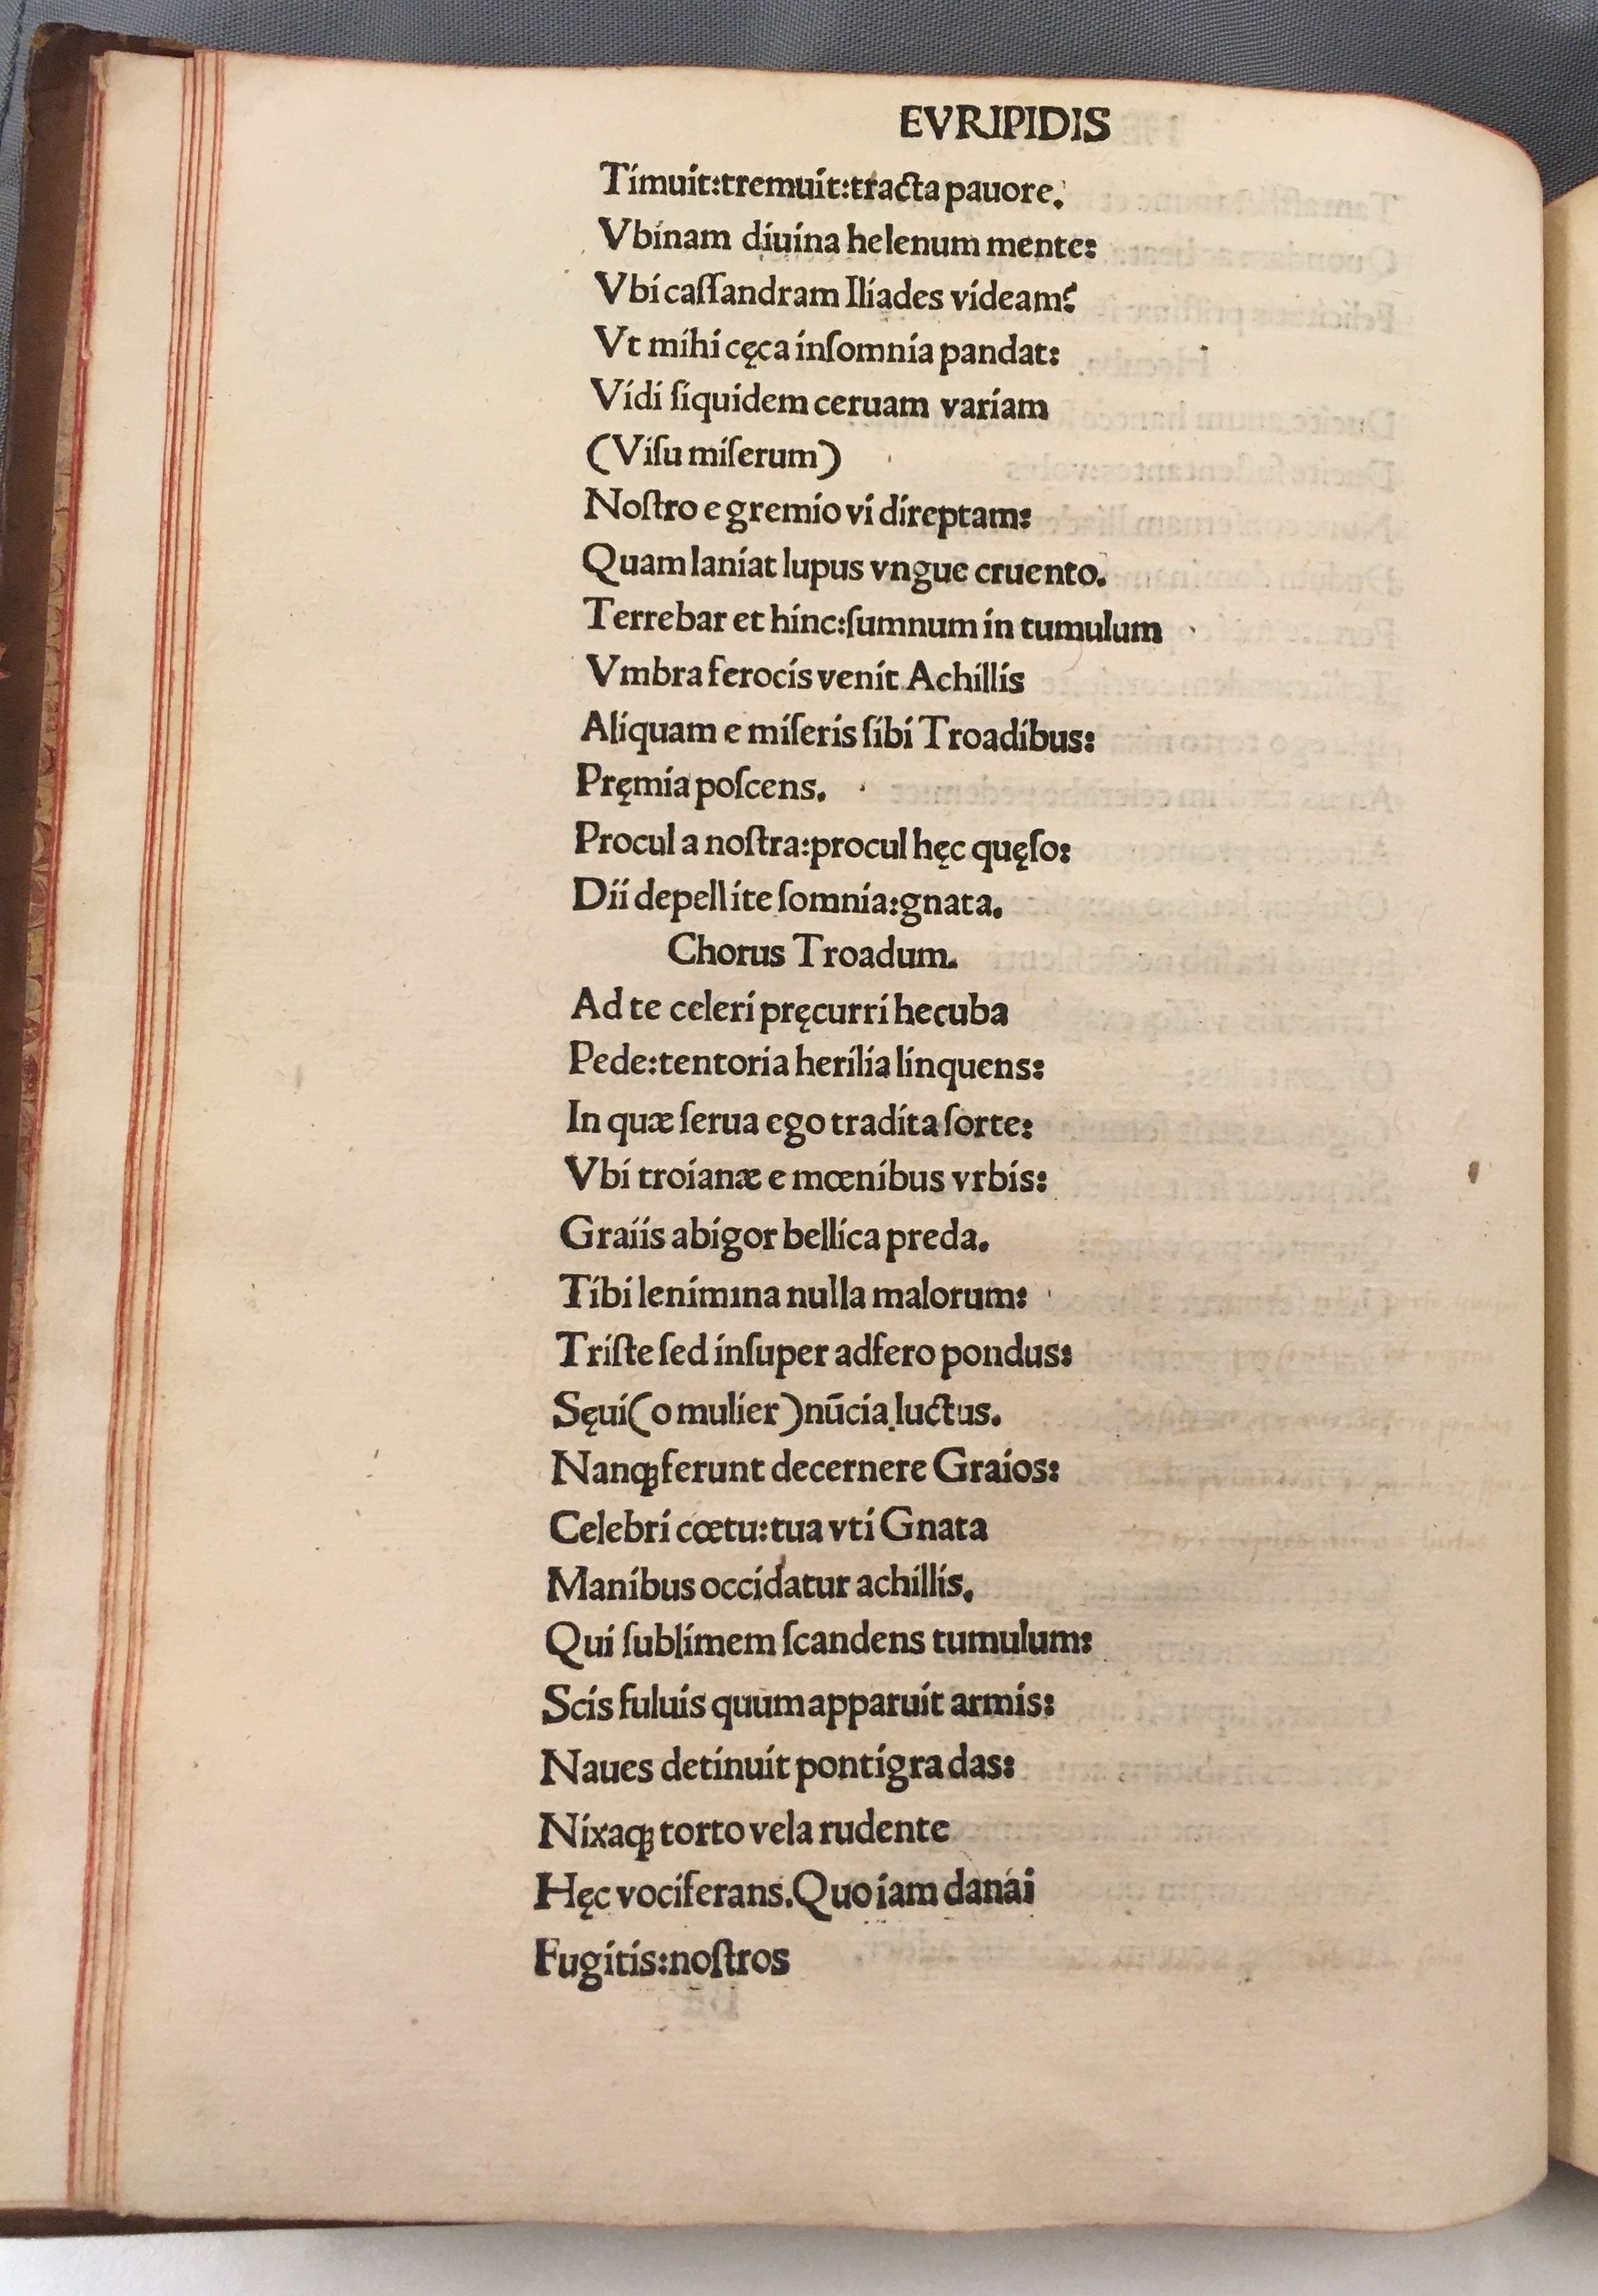 EVRIPIDIS
Timuit:tremuit:tracta pauore.
Vbinam diuina helenum mente:
Vbi caſſandram Iliades videam?
Vt mihi cęca inſomnia pandat:
Vidi ſiquidem ceruam variam
(Viſu miſerum)
Noſtro e gremio vi direptam:
Quam laniat lupus vngue cruento.
Terrebar et hinc:ſumnum in tumulum
Vmbra ferocis venit Achillis
Aliquam e miſeris ſibi Troadibus:
Pręmia poſcens.
Procul a noſtra:procul hęc quęſo:
Dii depellite ſomnia:gnata.
Chorus Troadum.
Ad te celeri pręcurri hecuba
Pede:tentoria herilia linquens:
In quæ ſerua ego tradita ſorte:
Vbi troianæ e mœnibus vrbis:
Graiis abigor bellica preda.
Tibi lenimina nulla malorum:
Triſte ſed inſuper adfero pondus:
Sęui(o mulier)nūcia luctus.
Nanqꝫ ferunt decernere Graios:
Celebri cœtu:tua vti Gnata
Manibus occidatur achillis.
Qui ſublimem ſcandens tumulum:
Scis fuluis quum apparuit armis:
Naues detinuit pontigradas:
Nixaqꝫ torto vela rudente
Hęc vociferans.Quo iam danai
Fugitis:noſtros